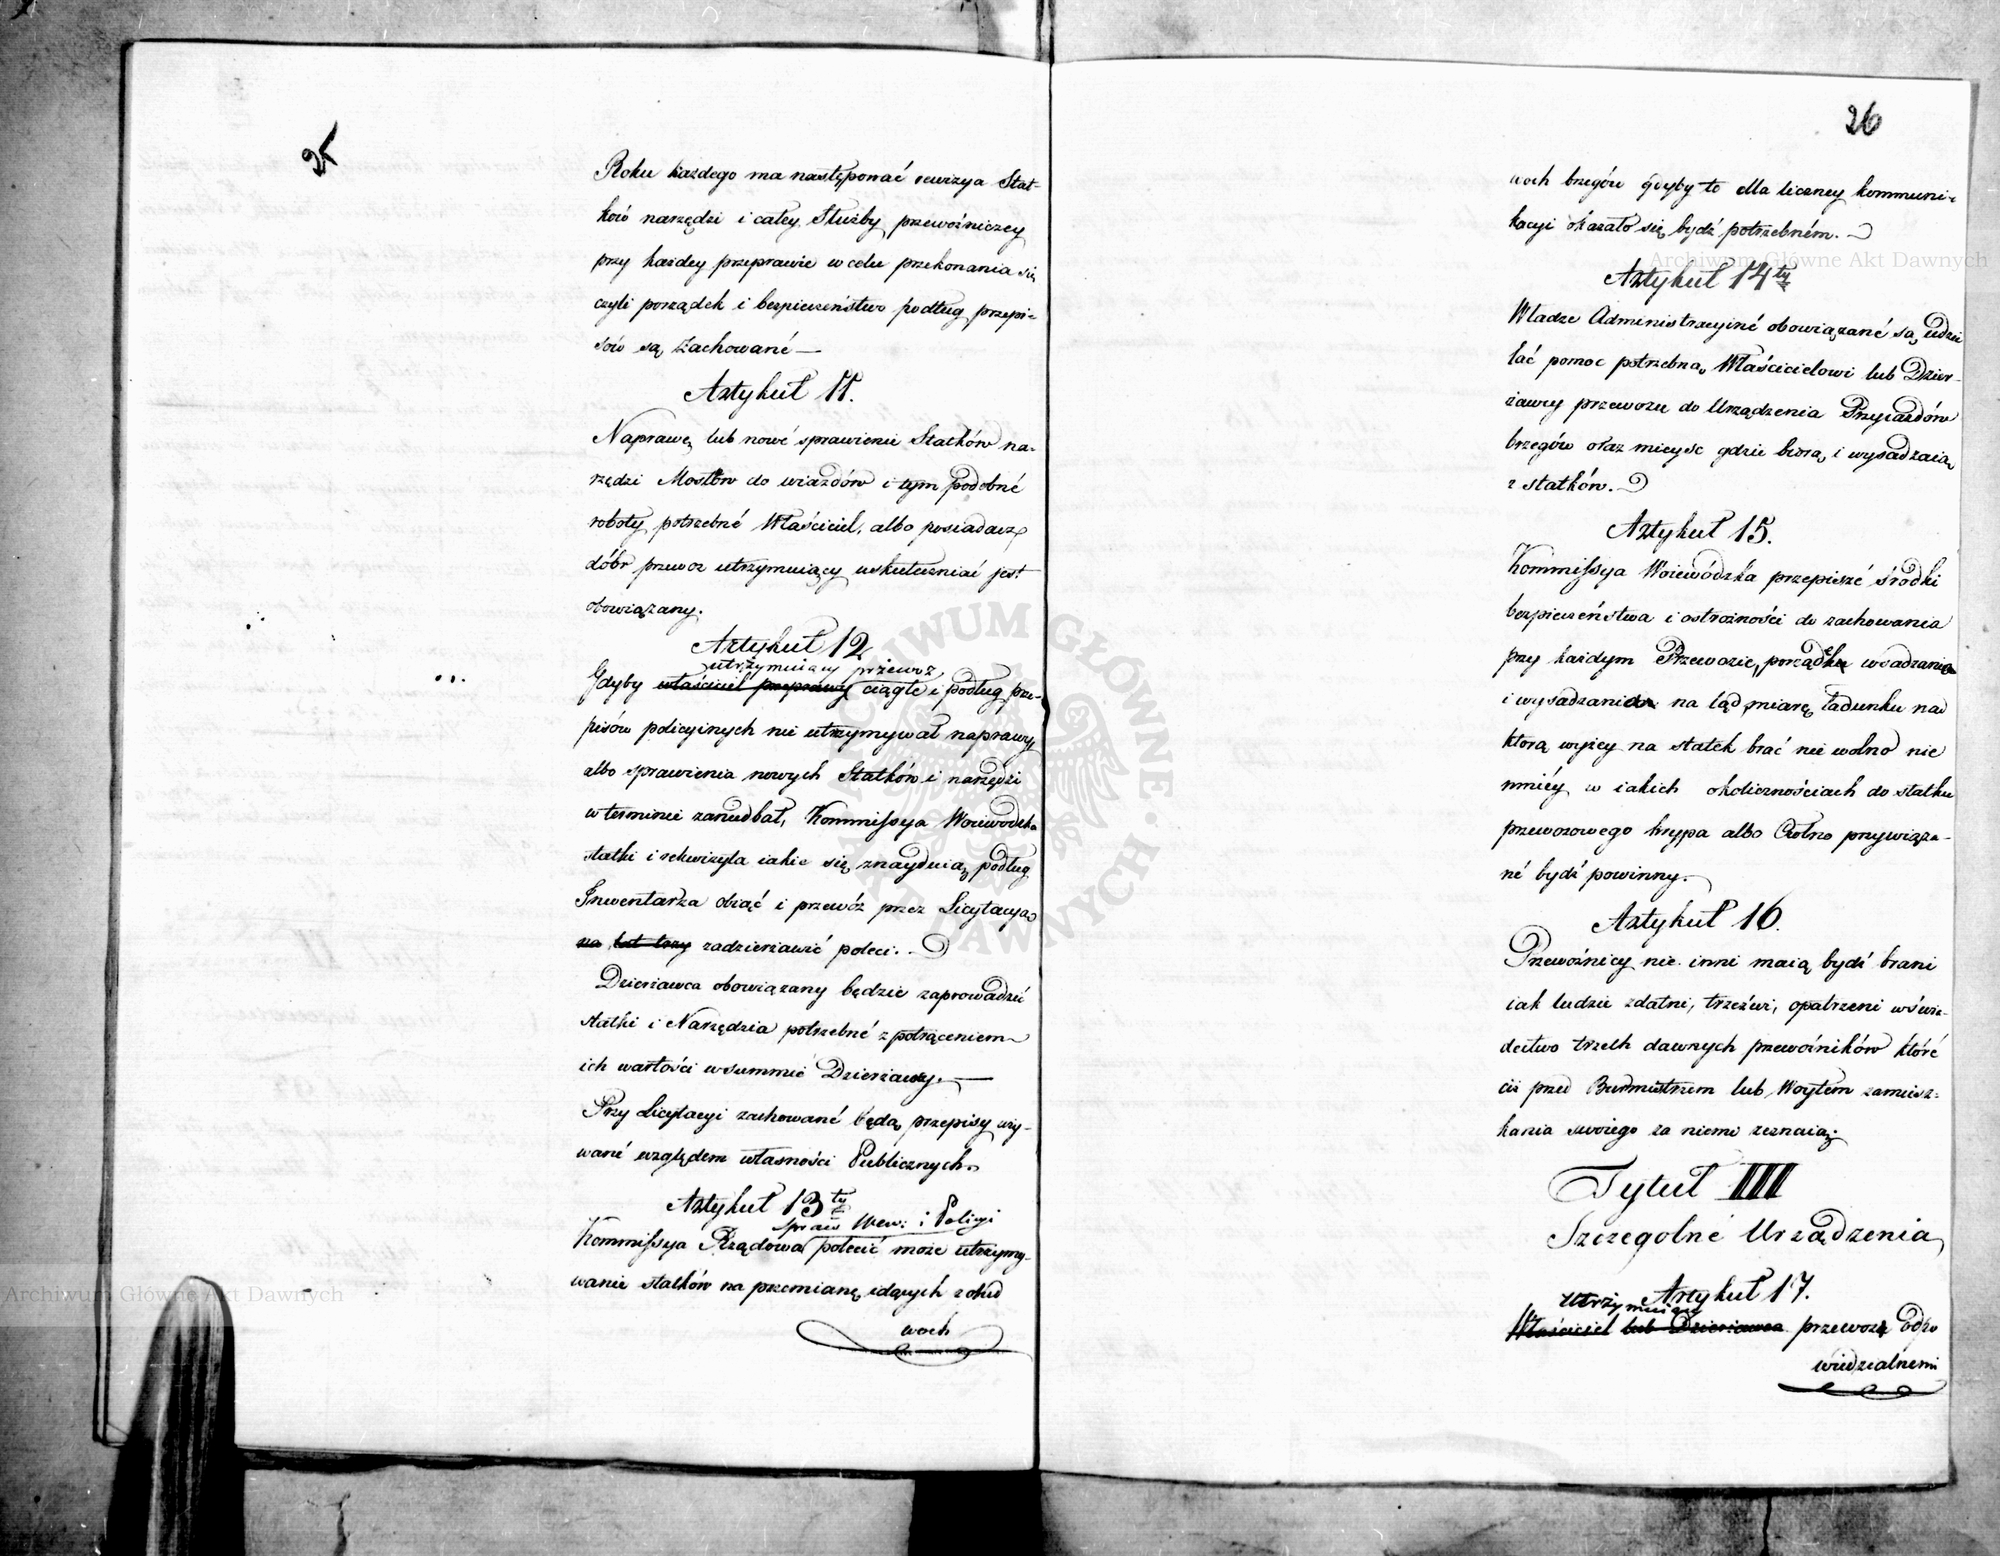 25
Roku każdego ma następować rewizya Stat-
ków narzędzi i całey Służby przewoźniczey
przy każdey przeprawie w celu przekonania się
czyli porządek i bezpieczeństwo podług przepi-
sów są zachowané —
Artykuł 11.
Naprawę lub nowé sprawienie Statków na-
rzędzi Mostów do wiazdów i tym podobné
roboty potrzebné Właściciel, albo posiadacz
dóbr przewoz utrzymuiący uskuteczniać jest
obowiązany.
Artykuł 12
utrzymuiący przewoz
Gdyby właściciel przeprawy ciągłe i podług prze-
pisów policyinych nie utrzymywał naprawy
albo sprawienia nowych Statków i narzędzi
w terminie zaniedbał, Kommissya Woiewódzka
statki i rekwizyta iakie się znayduią podług
Inwentarza obiąć i przewóz przez Licytacyą
na lat trzy zadzierżawić poleci.
Dzierżawca obowiązany będzie zaprowadzić
statki i Narzędzia potrzebné z potrąceniem
ich wartości w summie Dzierżawy. —
Przy Licytacyi zachowané będą przepisy uży-
wané względem własności Publicznych.
Artykuł 13ty
spraw Wew: i Policyi
Kommissya Rządowa polecić może utrzymy-
wanie statków na przemianę idących z obud
woch
26
woch brzegów gdyby to dla liczney kommuni-
kacyi okazało się bydź potrzebném.
Artykuł 14ty
Władze Administracyiné obowiązané są udzie
lać pomoc potrzebną Właścicielowi lub Dzier-
żawcy przewozu do Urządzenia Przyiazdów
brzegów oraz mieysc gdzie biorą i wysadzaią
z statków.
Artykuł 15.
Kommissya Woiewódzka przepiszé środki
bezpieczeństwa i ostrożności do zachowania
przy każdym Przewozie, porządku wsadzania
i wysadzania na ląd, miarę ładunku nad
którą wyżey na statek brać nie wolno nie
mniéy w iakich okolicznościach do statku
przewozowego krypa albo Czółno przywiąza-
né bydź powinny.
Artykuł 16.
Przewoźnicy nie inni maią bydź brani
iak ludzie zdatni, trzeźwi, opatrzeni w świa-
dectwo trzech dawnych przewoźników któré
ciż przed Burmistrzem lub Woytem zamiesz-
kania swoiego za niemi zeznaią.
Tytuł III
Szczegolné Urządzenia
Artykuł 17.
Utrzymuiący
Właściciel lub Dzierżawca przewoz odpo
wiedzialnemi